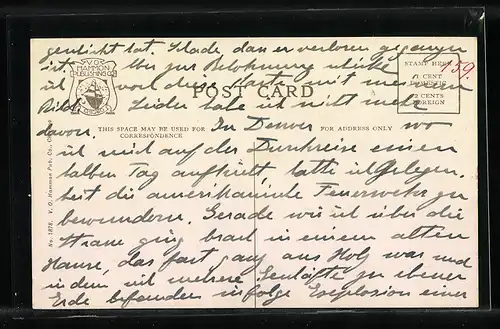 gedichtet hat. Schade, dass er verloren gegangen
ist. Aber zur Belohnung schicke
ich noch diese Karte mit meinem
Bild. Leider habe ich nicht mehr
davon. In Denver wo
ich mich auf der Durchreise einen
halben Tag aufhielt, hatte ich Gelegen-
heit die amerikanische Feuerwehr zu
bewundern. Gerade wie ich über die
Strasse ging brach in einem alten
Hause, das fast ganz aus Holz war und
in dem sich mehrere Geschäfte zu ebener
Erde befanden infolge Explosion einer
V.O. HAMMON PUBLISHING CO.
POST CARD
THIS SPACE MAY BE USED FOR CORRESPONDENCE
FOR ADDRESS ONLY
STAMP HERE
1 CENT DOMESTIC
2 CENTS FOREIGN
159.
No. 1878. V. O. Hammon Pub. Co.,